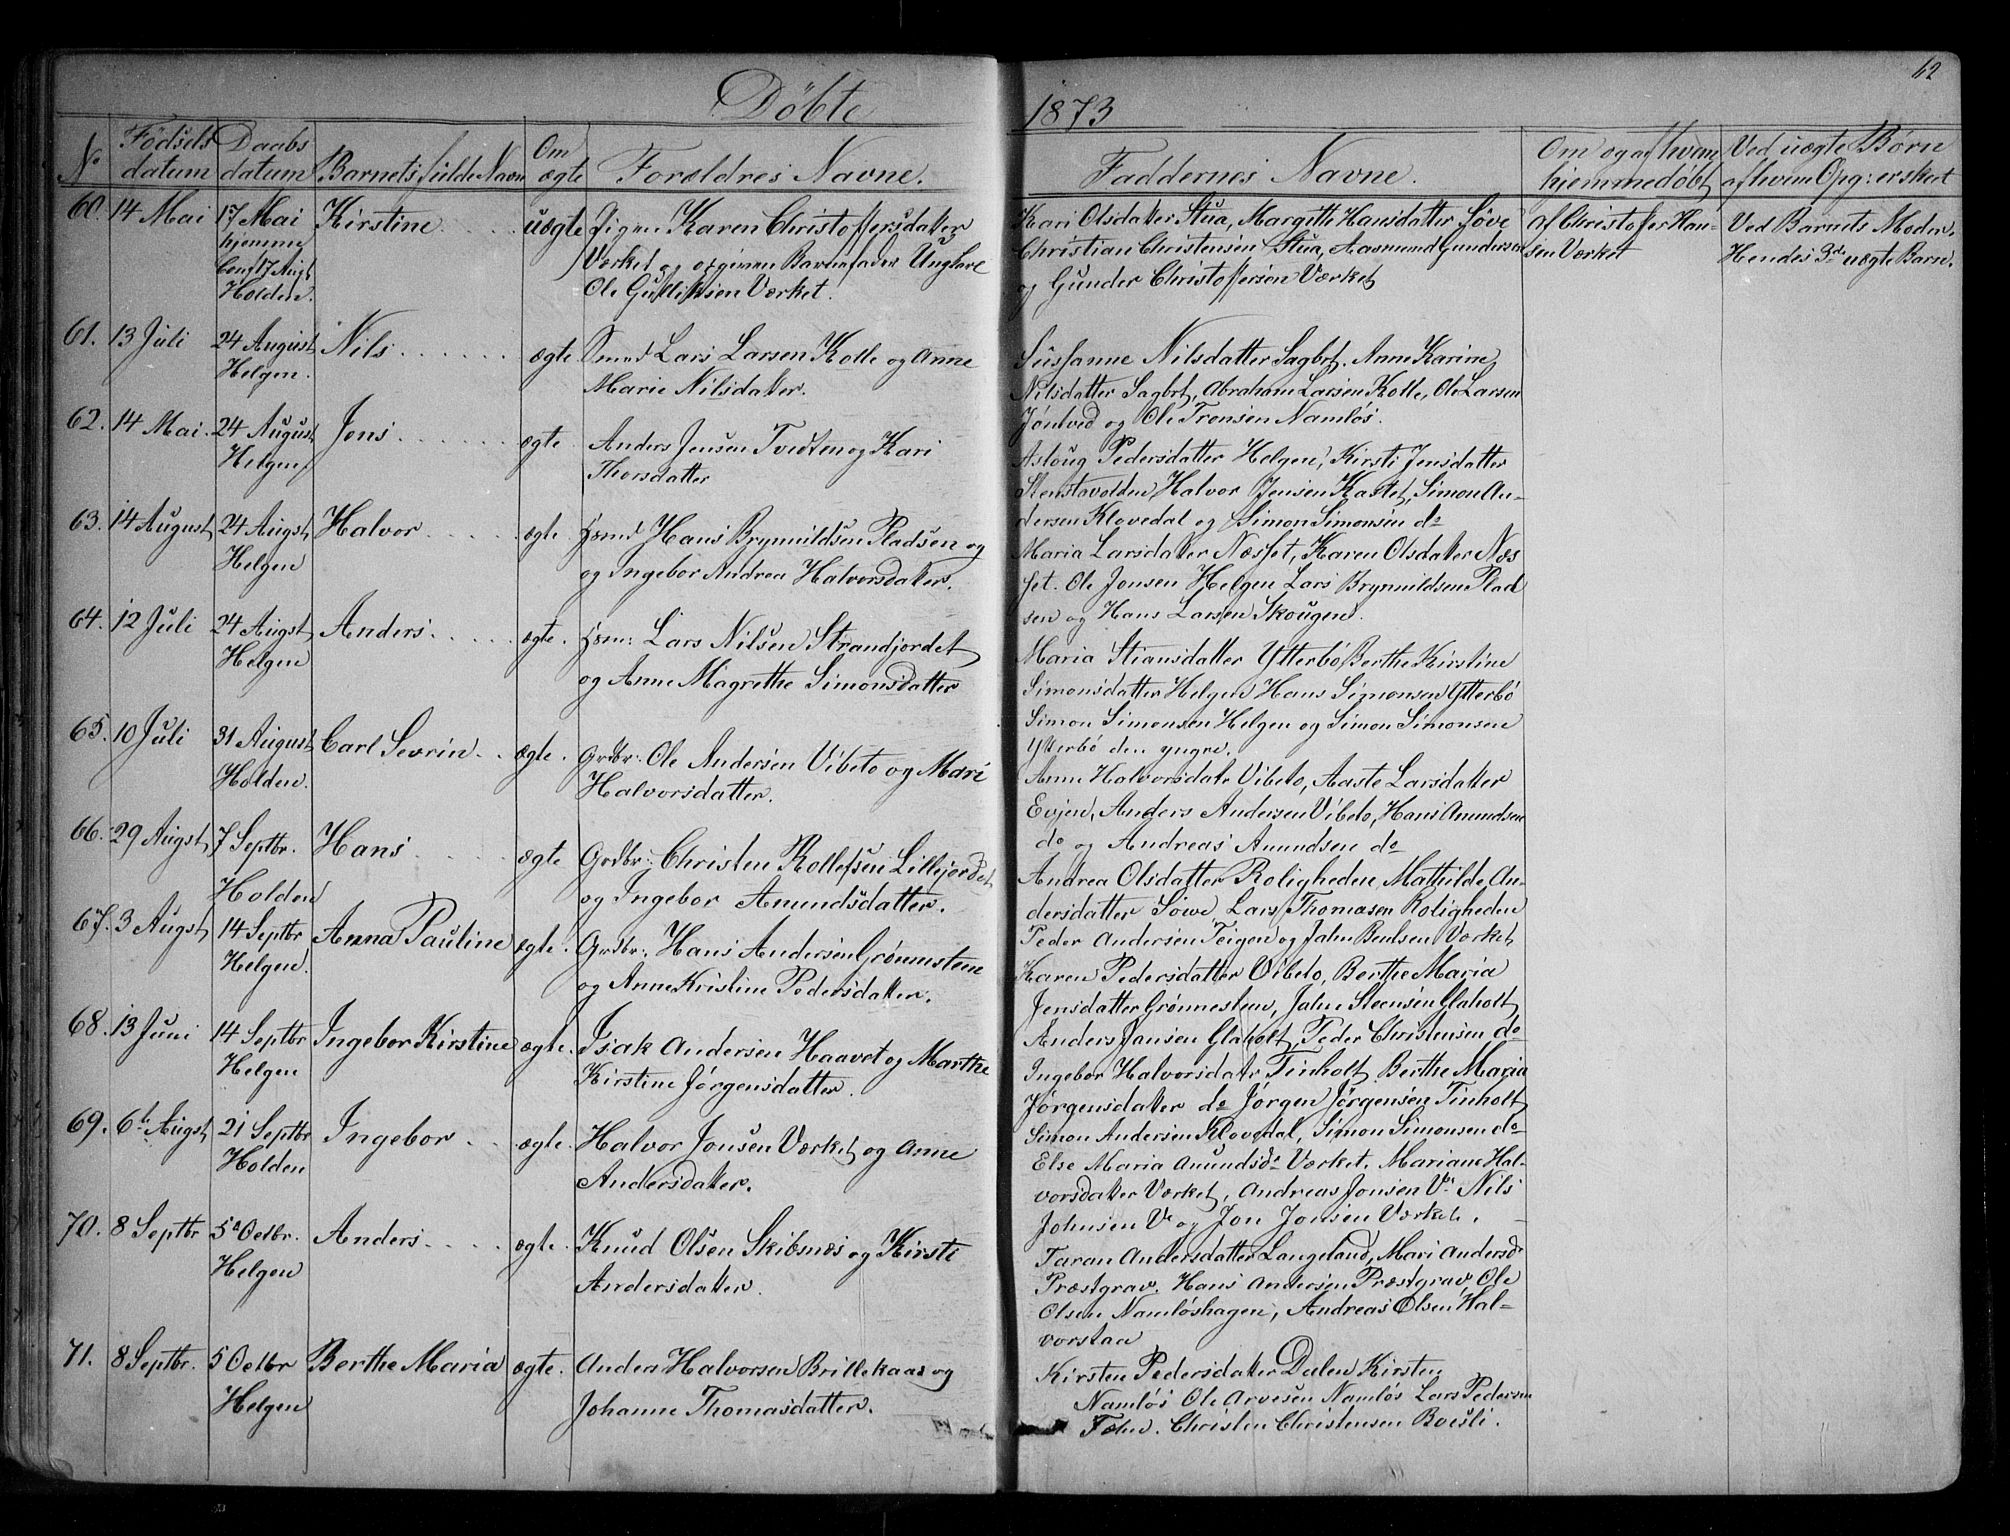 Döbte
1873
62
No
Födsels datum
Daabs datum
Barnets fulde Navn
Om ægte
Forældres Navne.
Faddernes Navne.
Om og af hvem hjemmedöbt
Ved uægte Børn af hvem Opg: er skeet
60. 14 Mai 17 Mai Kirstine uægte Pigen Karen Christoffersdatter
hjemme Værket og opgiven Barnefader Ungkarl
Conf 17 Augt Ole Gulliksen Værket.
Holden.
Kari Olsdatter Stua, Margitte Hansdatter Søve
Christian Christensen Stua, Aasmund Gundersen
og Gunder Christoffersen Værket
af Christoffer Han-
sen Værket
Ved Barnets Moder.
Hendes 3de uægte Barn.
61. 13 Juli 24 August Nils ægte Smed Lars Larsen Kolle og Anne
Helgen. Marie Nilsdatter.
Susanne Nilsdatter Sagbt. Anne Karine
Nilsdatter Sagbt, Abraham Larsen Kolle, Ole Larsen
Jöntved og Ole Tronsen Namlös.
62. 14 Mai. 24 August Jens ægte. Anders Jensen Tvedten og Kari
Helgen Thorsdatter
Asloug Pedersdatter Helgen, Kirsti Jensdatter
Stenstavolden, Halvor Jensen Kastet, Simon An-
dersen Klovedal og Simon Simonsen do
63. 14 August 24 Augst Halvor ægte. Hsmd Hans Brynnildsen Pladsen og
Helgen og Ingebor Andrea Halvorsdatter.
Maria Larsdatter Næsset, Karen Olsdatter Næs
set. Ole Jensen Helgen Lars Brynnildsen Plad
sen og Hans Larsen Skougen.
64. 12 Juli 24 Augst Anders ægte. Hsm: Lars Nilsen Strandjordet
Helgen og Anne Magrethe Simonsdatter
Maria Stiansdatter Ytterbö Berthe Kirstine
Simonsdatter Helgen Hans Simonsen Ytterbö
Simon Simonsen Helgen og Simon Simonsen
Ytterbö den yngre.
65. 10 Juli 31 August Carl Sevrin ægte. Grdbr: Ole Andersen Vibeto og Mari
Holden. Halvorsdatter.
Anne Halvorsdatr Vibeto, Aaste Larsdatter
Evjen, Anders Andersen Vibeto, Hans Amundsen
do og Andreas Amundsen do
66. 29 Augst 7 Septbr. Hans ægte Grdbr: Christen Rollefsen Lillejordet
Holden og Ingebor Amundsdatter.
Andrea Olsdatter Roligheden, Mathilde An-
dersdatter Söwe, Lars Thomasen Roligheden
Peder Andersen Teigen og Jahn Bentsen Værket
67. 3 Augst 14 Septbr Anna Pauline ægte. Grdbr. Hans Andersen Grönnsteen
Helgen. og Anne Kristine Pedersdatter.
Karen Pedersdatter Vibeto, Berthe Maria
Jensdatter Grönnesteen, Jahn Steensen Glaholt,
Anders Jansen Glaholt, Peder Christensen do
68. 13 Juni 14 Septbr Ingebor Kirstine ægte. Isak Andersen Haavet og Marthe
Helgen Kirstine Jörgensdatter.
Ingebor Halvorsdatr Tinholt Berthe Maria
Jörgensdatter do Jörgen Jörgensen Tinholt,
Simon Andersen Klovedal, Simon Simonsen do
69. 6te Augst 21 Septbr Ingebor ægte. Halvor Jonsen Værket og Anne
Holden Andersdatter.
Else Maria Amundsdr Værket. Mariane Hal-
vorsdatter Værket, Andreas Jonsen Vt Nils
Johnsen Vt og Jon Jonsen Værket.
70. 8 Septbr 5te Octbr. Anders ægte. Knud Olsen Skibsnæs og Kirsti
Helgen Andersdatter.
Taran Andersdatter Langeland, Mari Andersdr
Præstgrav. Hans Andersen Præstgrav, Ole
Olsen Namløshagen, Andreas Olsen Hal-
vorstaa
71. 8 Septbr. 5 Octbr Berthe Maria ægte. Anders Halvorsen Brillekaas og
Helgen Johanne Thomasdatter.
Kirsten Pedersdatter Dalen Kirsten
Namlös Ole Arvesen Namlös Lars Pedersen
Fæhn. Christen Christensen Boesli.